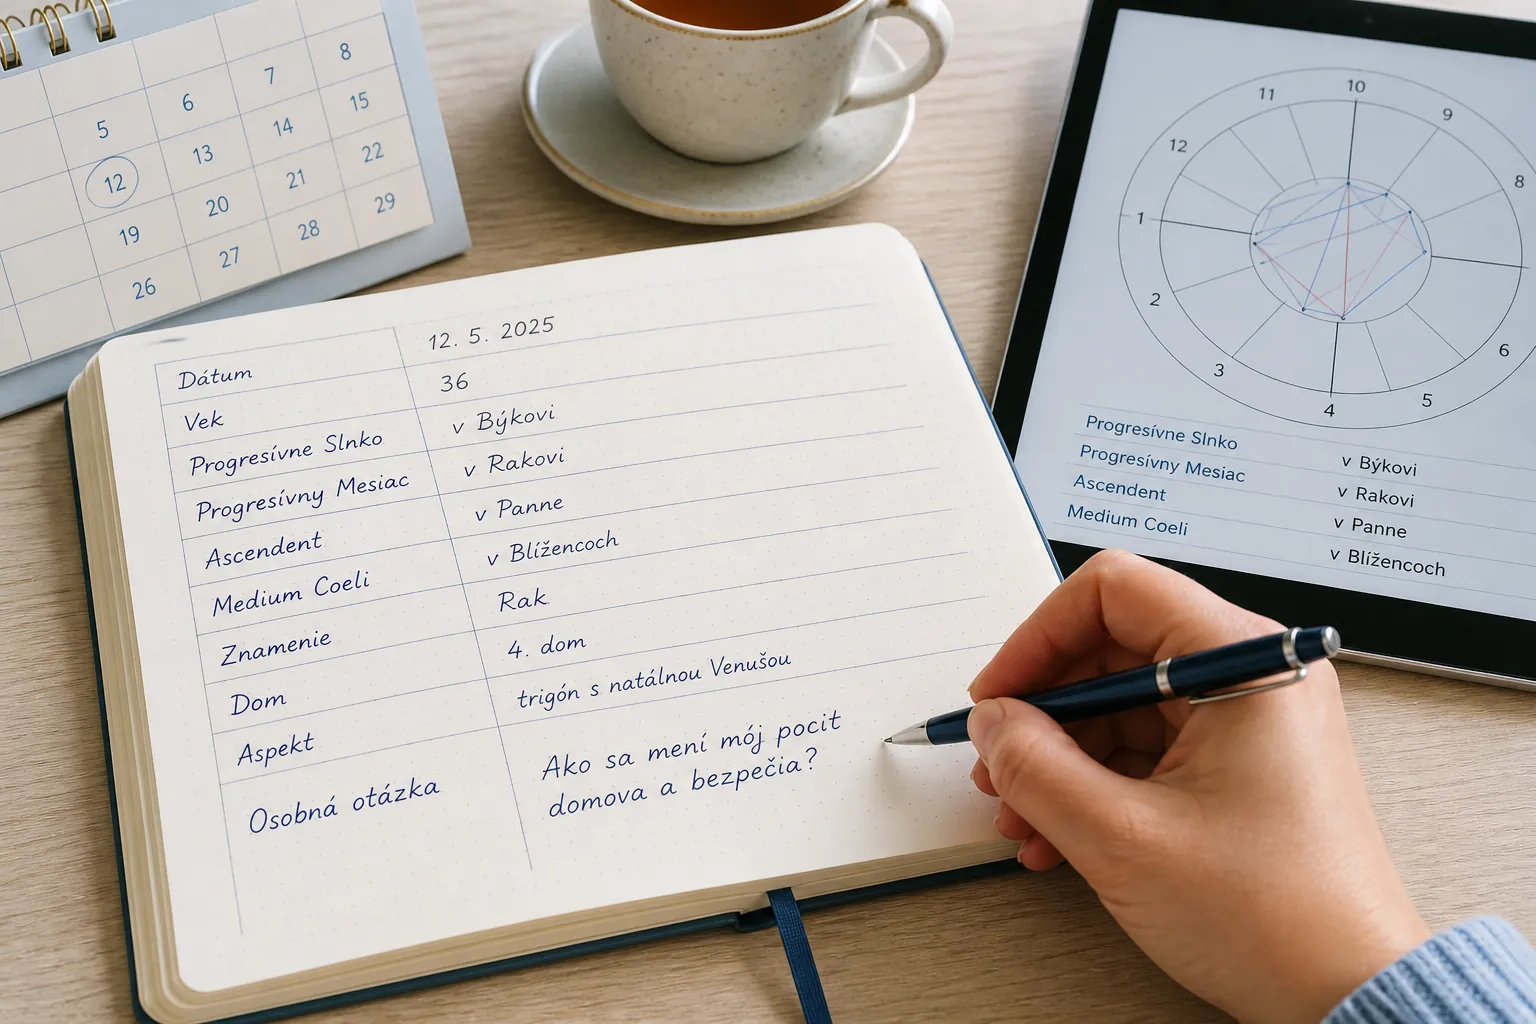 5 6 7 8
12 13 14 15
19 20 21 22
26 27 28 29
Dátum 12. 5. 2025
Vek 36
Progresívne Slnko v Býkovi
Progresívny Mesiac v Rakovi
Ascendent v Panne
Medium Coeli v Blížencoch
Znamenie Rak
Dom 4. dom
Aspekt trigón s natálnou Venušou
Osobná otázka Ako sa mení môj pocit
domova a bezpečia?
10
11
9
12
8
1
2
6
3
5
4
Progresívne Slnko v Býkovi
Progresívny Mesiac v Rakovi
Ascendent v Panne
Medium Coeli v Blížencoch